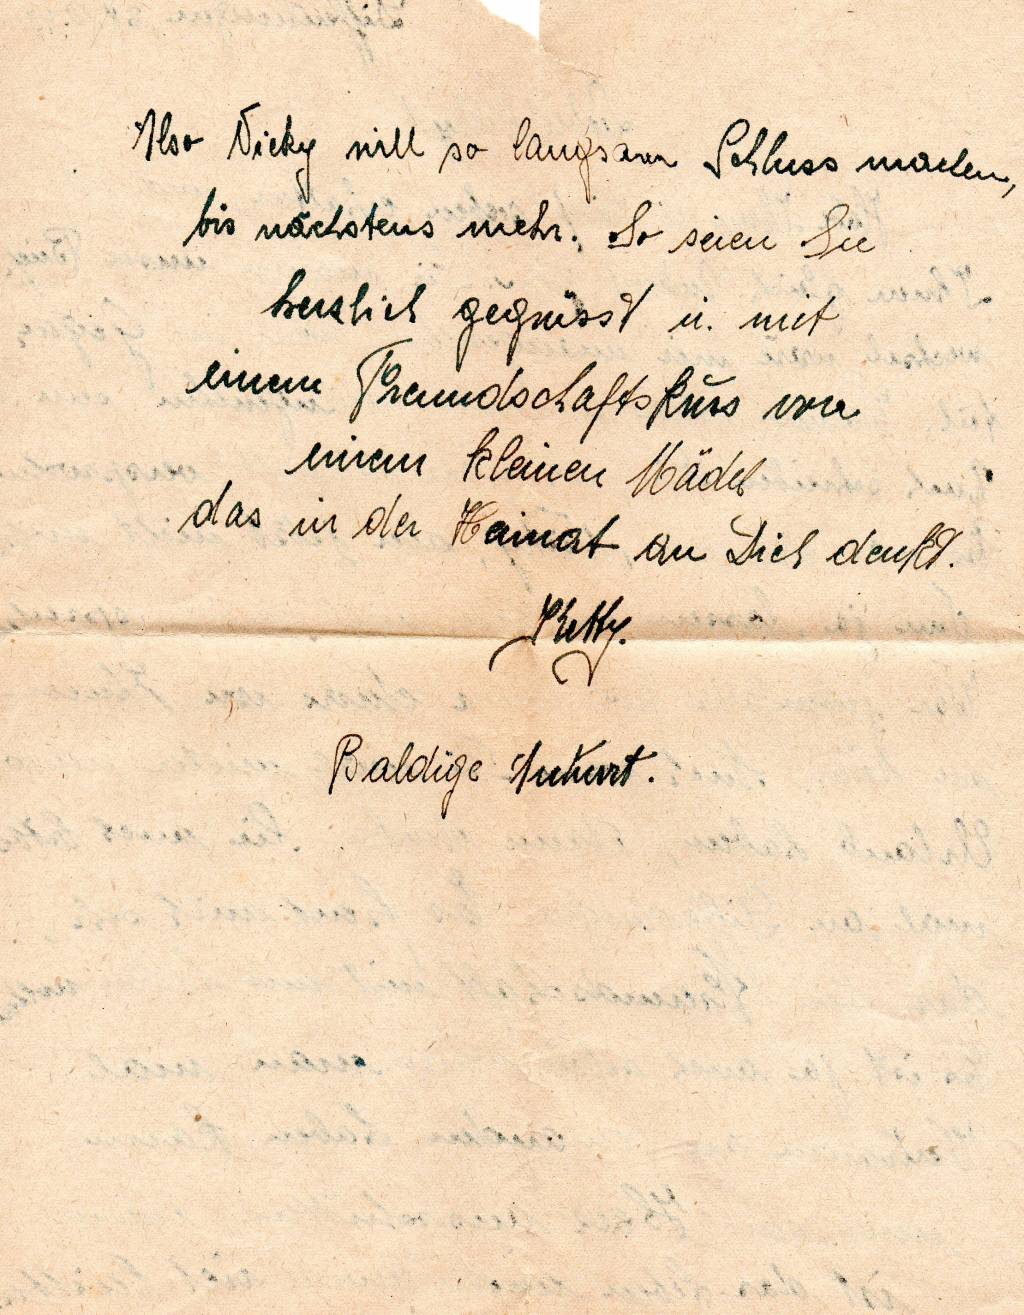 Also Nicky will so langsam Schluss machen,
bis nächstens mehr. So seien Sie
herzlich gegrüsst u. mit
einem Freundschaftskuss von
einem kleinen Mädel
das in der Heimat an Dich denkt.
Ketty.
Baldige Antwort.